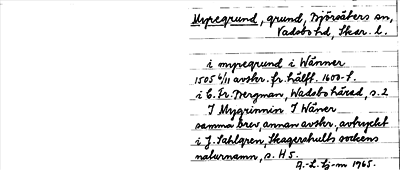 Myregrund, grund, Björsäters sn,
Vadsbo hd, Skar. l.
i myregrund i Wänner
1505 6/11 avskr. fr. hälft. 1600-t.
i C. Fr. Bergman, Wadsbo härad, s. 2
I Mygrinnin I Wäner
samma brev, annan avskr., avtryckt
i J. Sahlgren, Skagershults sockens
naturnamn, s. 45.
A.-L. Lj-m 1965.